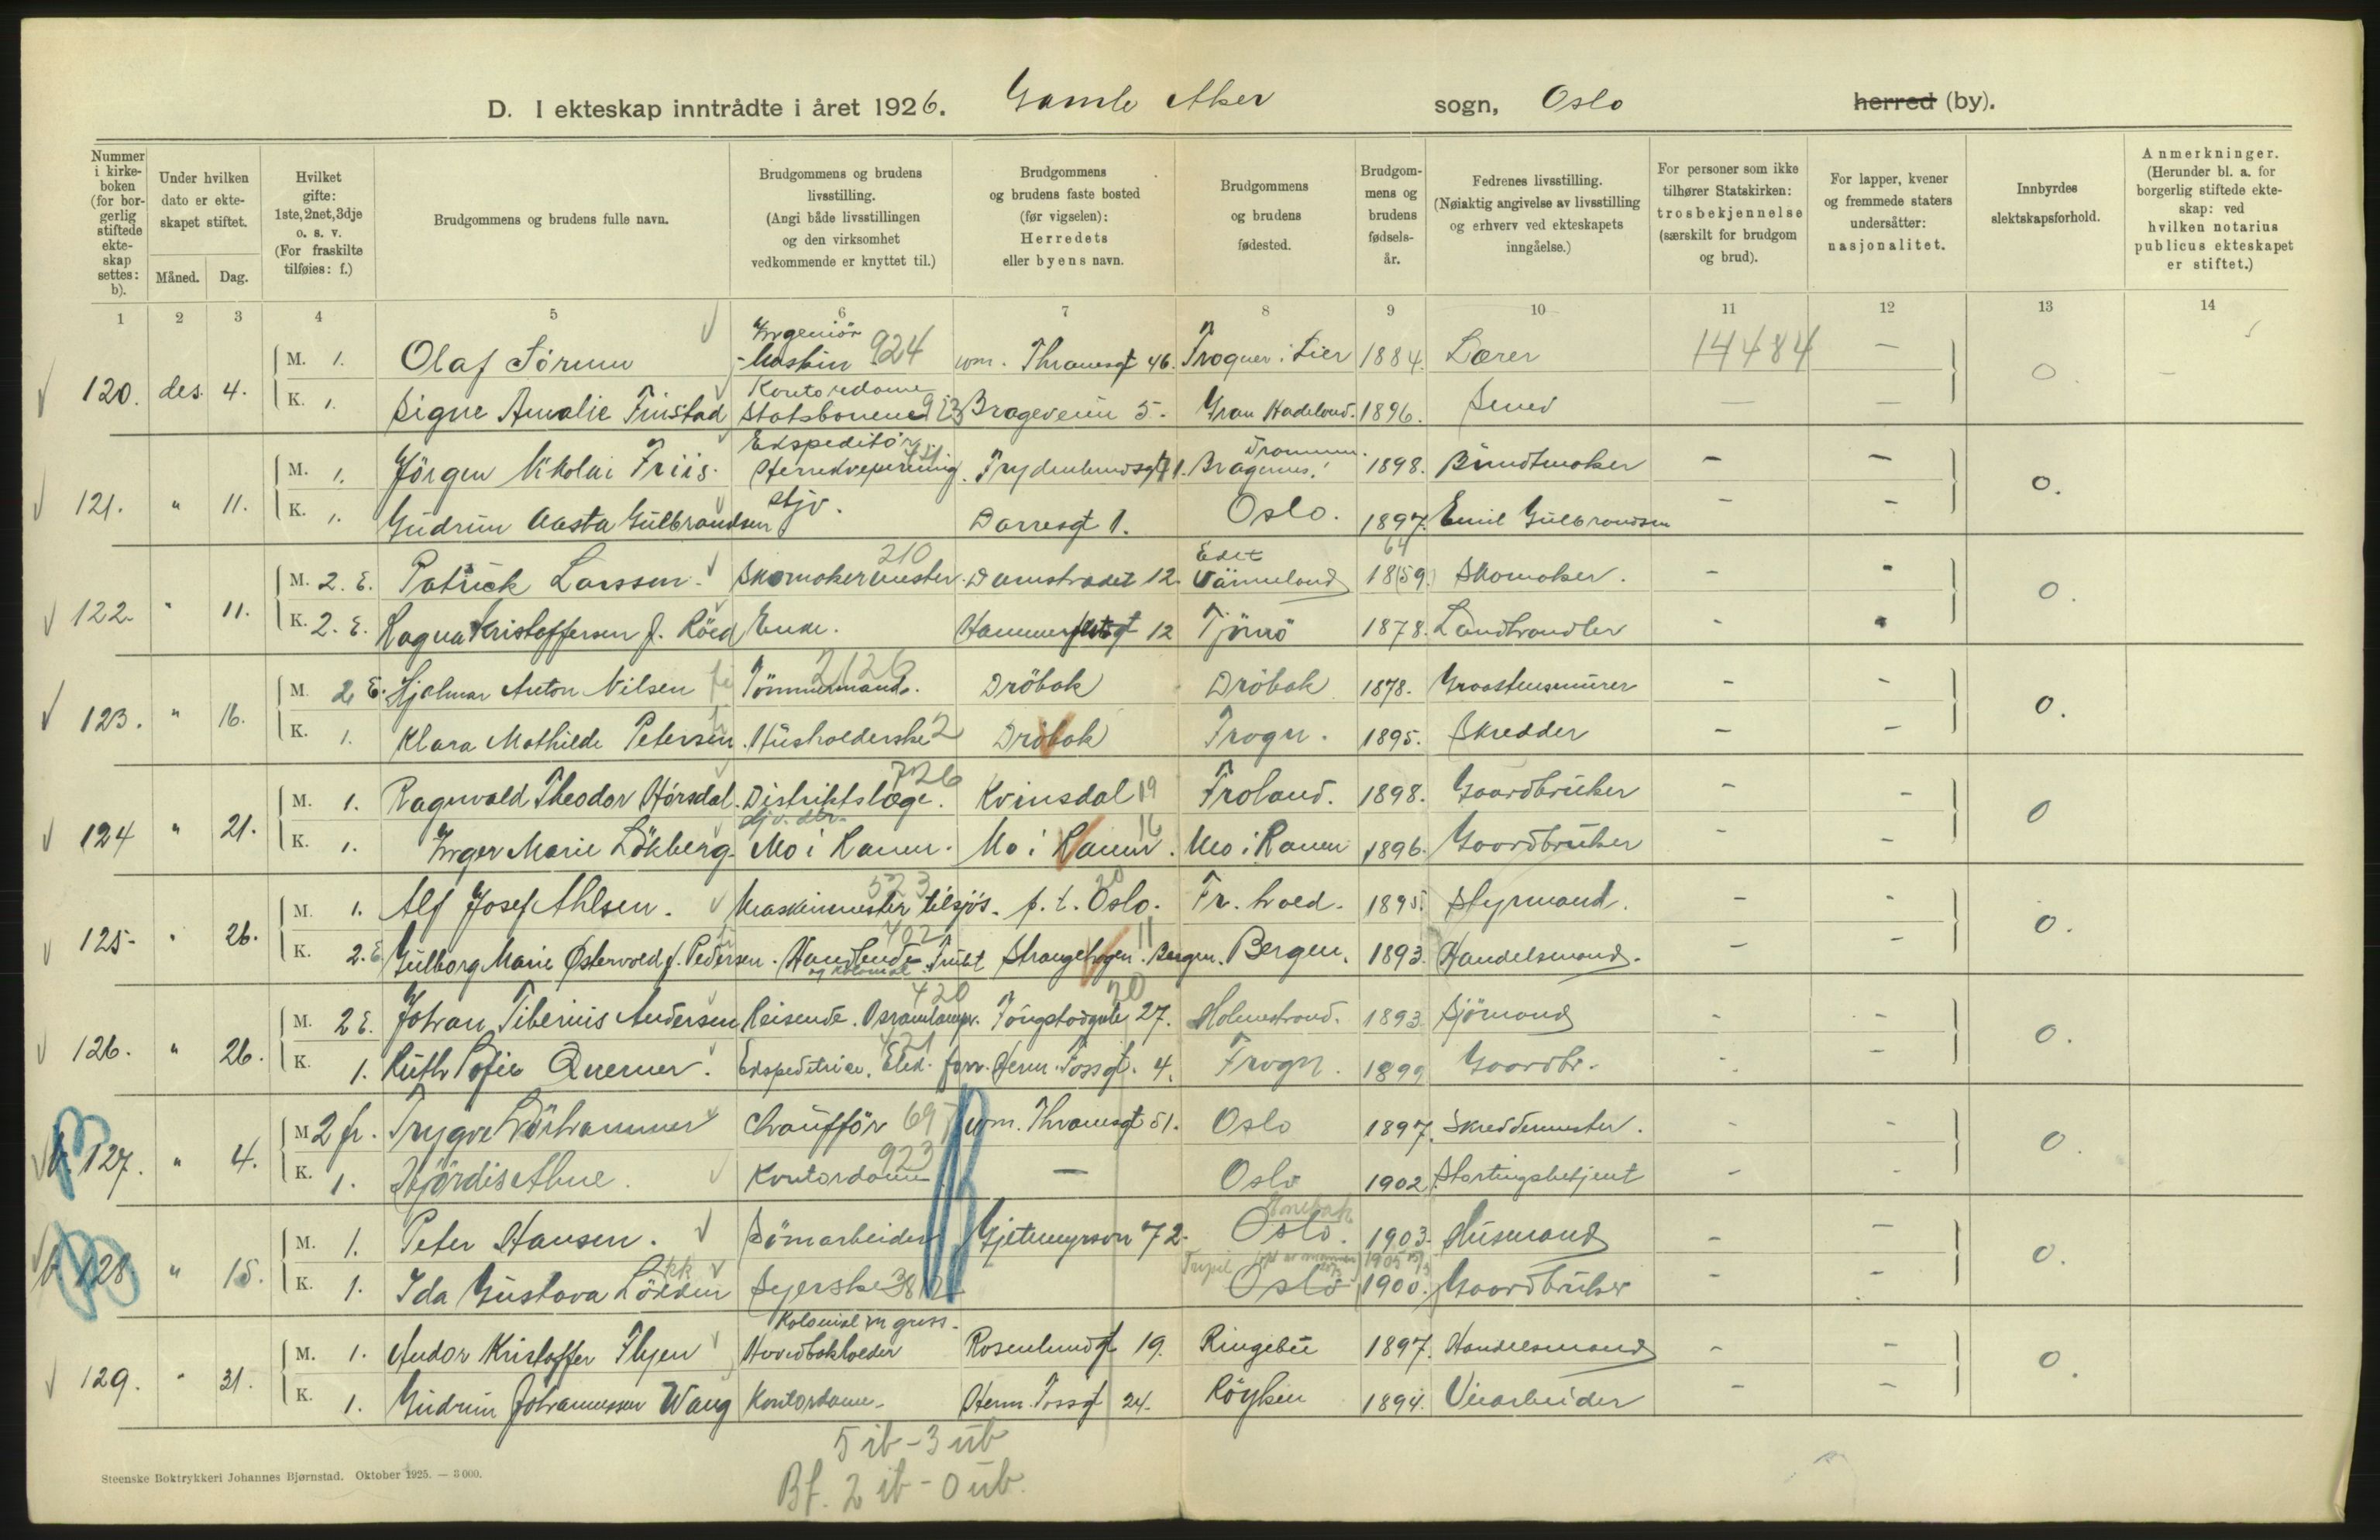 D. I ekteskap inntrådte i året 1926. Gamle Aker sogn, Oslo herred (by).
Nummer i kirkeboken (for borgerlig stiftede ekteskap settes: b).
Under hvilken dato er ekteskapet stiftet.
Måned. Dag.
Hvilket gifte: 1ste, 2net, 3dje o. s. v. (For fraskilte tilføies: f.)
Brudgommens og brudens fulle navn.
Brudgommens og brudens livsstilling. (Angi både livsstillingen og den virksomhet vedkommende er knyttet til.)
Brudgommens og brudens faste bosted (før vigselen): Herredets eller byens navn.
Brudgommens og brudens fødested.
Brudgommens og brudens fødselsår.
Fedrenes livsstilling. (Nøiaktig angivelse av livsstilling og erhverv ved ekteskapets inngåelse.)
For personer som ikke tilhører Statskirken: trosbekjennelse (særskilt for brudgom og brud).
For lapper, kvener og fremmede staters undersåtter: nasjonalitet.
Innbyrdes slektskapsforhold.
Anmerkninger. (Herunder bl. a. for borgerlig stiftede ekteskap: ved hvilken notarius publicus ekteskapet er stiftet.)
1 2 3 4 5 6 7 8 9 10 11 12 13 14
120. des. 4. M. 1. Olaf Sörum Ingeniör Maskin 924 Thranesgt 46. Froguer i Lier 1884. Lærer 14484 — 0 —
K. 1. Signe Amalie Finstad Kontordame Statsbanene Brageveien 5. Gran Hadeland. 1896. Smed — —
121. " 11. M. 1. Jörgen Nikolai Friis. Ekspeditör Herrekvipering. Frydenlundsgt 1. Bragernes. Drammen. 1898. Buntmaker — — 0.
K. 1. Gudrun Aasta Gulbrandsen Hjv. Darresgt 1. Oslo. 1897. Emil Gulbrandsen - -
122. " 11. M. 2. E. Patrick Larssen. Skomakermester. 210 Damstredet 12. Edet Värmeland 18(59.) 64 Skomaker. - - 0.
K. 2. E. Ragna Kristoffersen f. Röed Enke. Hammerfestgt 12 Tjömö 1878. Landhandler - -
123. " 16. M. 2 E. Hjalmar Anton Nilsen Tömmermand. 2126 Dröbak Dröbak 1878. Graastensmurer - - 0.
K. 1. Klara Mathilde Petersen. Husholderske 2 Dröbak Frogn. 1895. Skredder - -
124 " 21. M. 1. Ragnvald Theodor Hörsdal. Distriktslæge. 726 Kvinsdal 19 Froland. 1898. Gaardbruker - - 0
K. 1. Inger Marie Lökberg. Mo i Ranen. Mo i Ranen. 16 Mo i Ranen 1896. Gaardbruker - -
125- " 26. M. 1. Alf Josef Ahlsen. Maskinmester tilsjös. 523 p. t. Oslo. 20 Fr. hald. 1895. Styrmand. - - 0.
K. 2. E Gulborg Marie Østervold f. Pedersen. Handlende Frukt og kolonial 402 Strangehagen. Bergen. 11 Bergen. 1893. Handelsmand. - -
126. " 26. M. 2 E. Johan Tiberius Andersen Reisende. Osramlamper. 420 27. 20 Holmestrand. 1893 Sjömand - - 0.
K. 1. Ruth Sofie Querner. Ekspeditrice. Elek. forr. 421 Herm. Fossgt. 4. Frogn. 1899 Gaardbr. - -
b 127. " 4. M 2 fr. Trygve Chauffør Thranesgt 51. Oslo 1897. Skreddermester. - - 0.
K. 1. Hjördis Aune. Kontordame 923 — Oslo 1902 Stortingsbetjent - -
b 128. " 15. M. 1. Peter Hansen. Sömarbeider Gjetemyrsvn 72. Oslo. 1903. Husmand - - 0.
K. 1. Ida Gustava Syerske Trysil Oslo 1905 1900. Gaardbruker - -
129. " 31. M. 1. Andor Kristoffer Thjen Kolonial en gross. Hovedbokholder Rosenlundgt 19. Ringebu 1897. Handelsmand - - 0.
K. 1. Gudrun Johannessen Wang Kontordame. Herm. Fossgt 24. Röyken 1894. Veiarbeider - -
5 ib - 3 ub
Bf. 2 ib - 0 ub.
Steenske Boktrykkeri Johannes Bjørnstad. Oktober 1925. — 3 000.